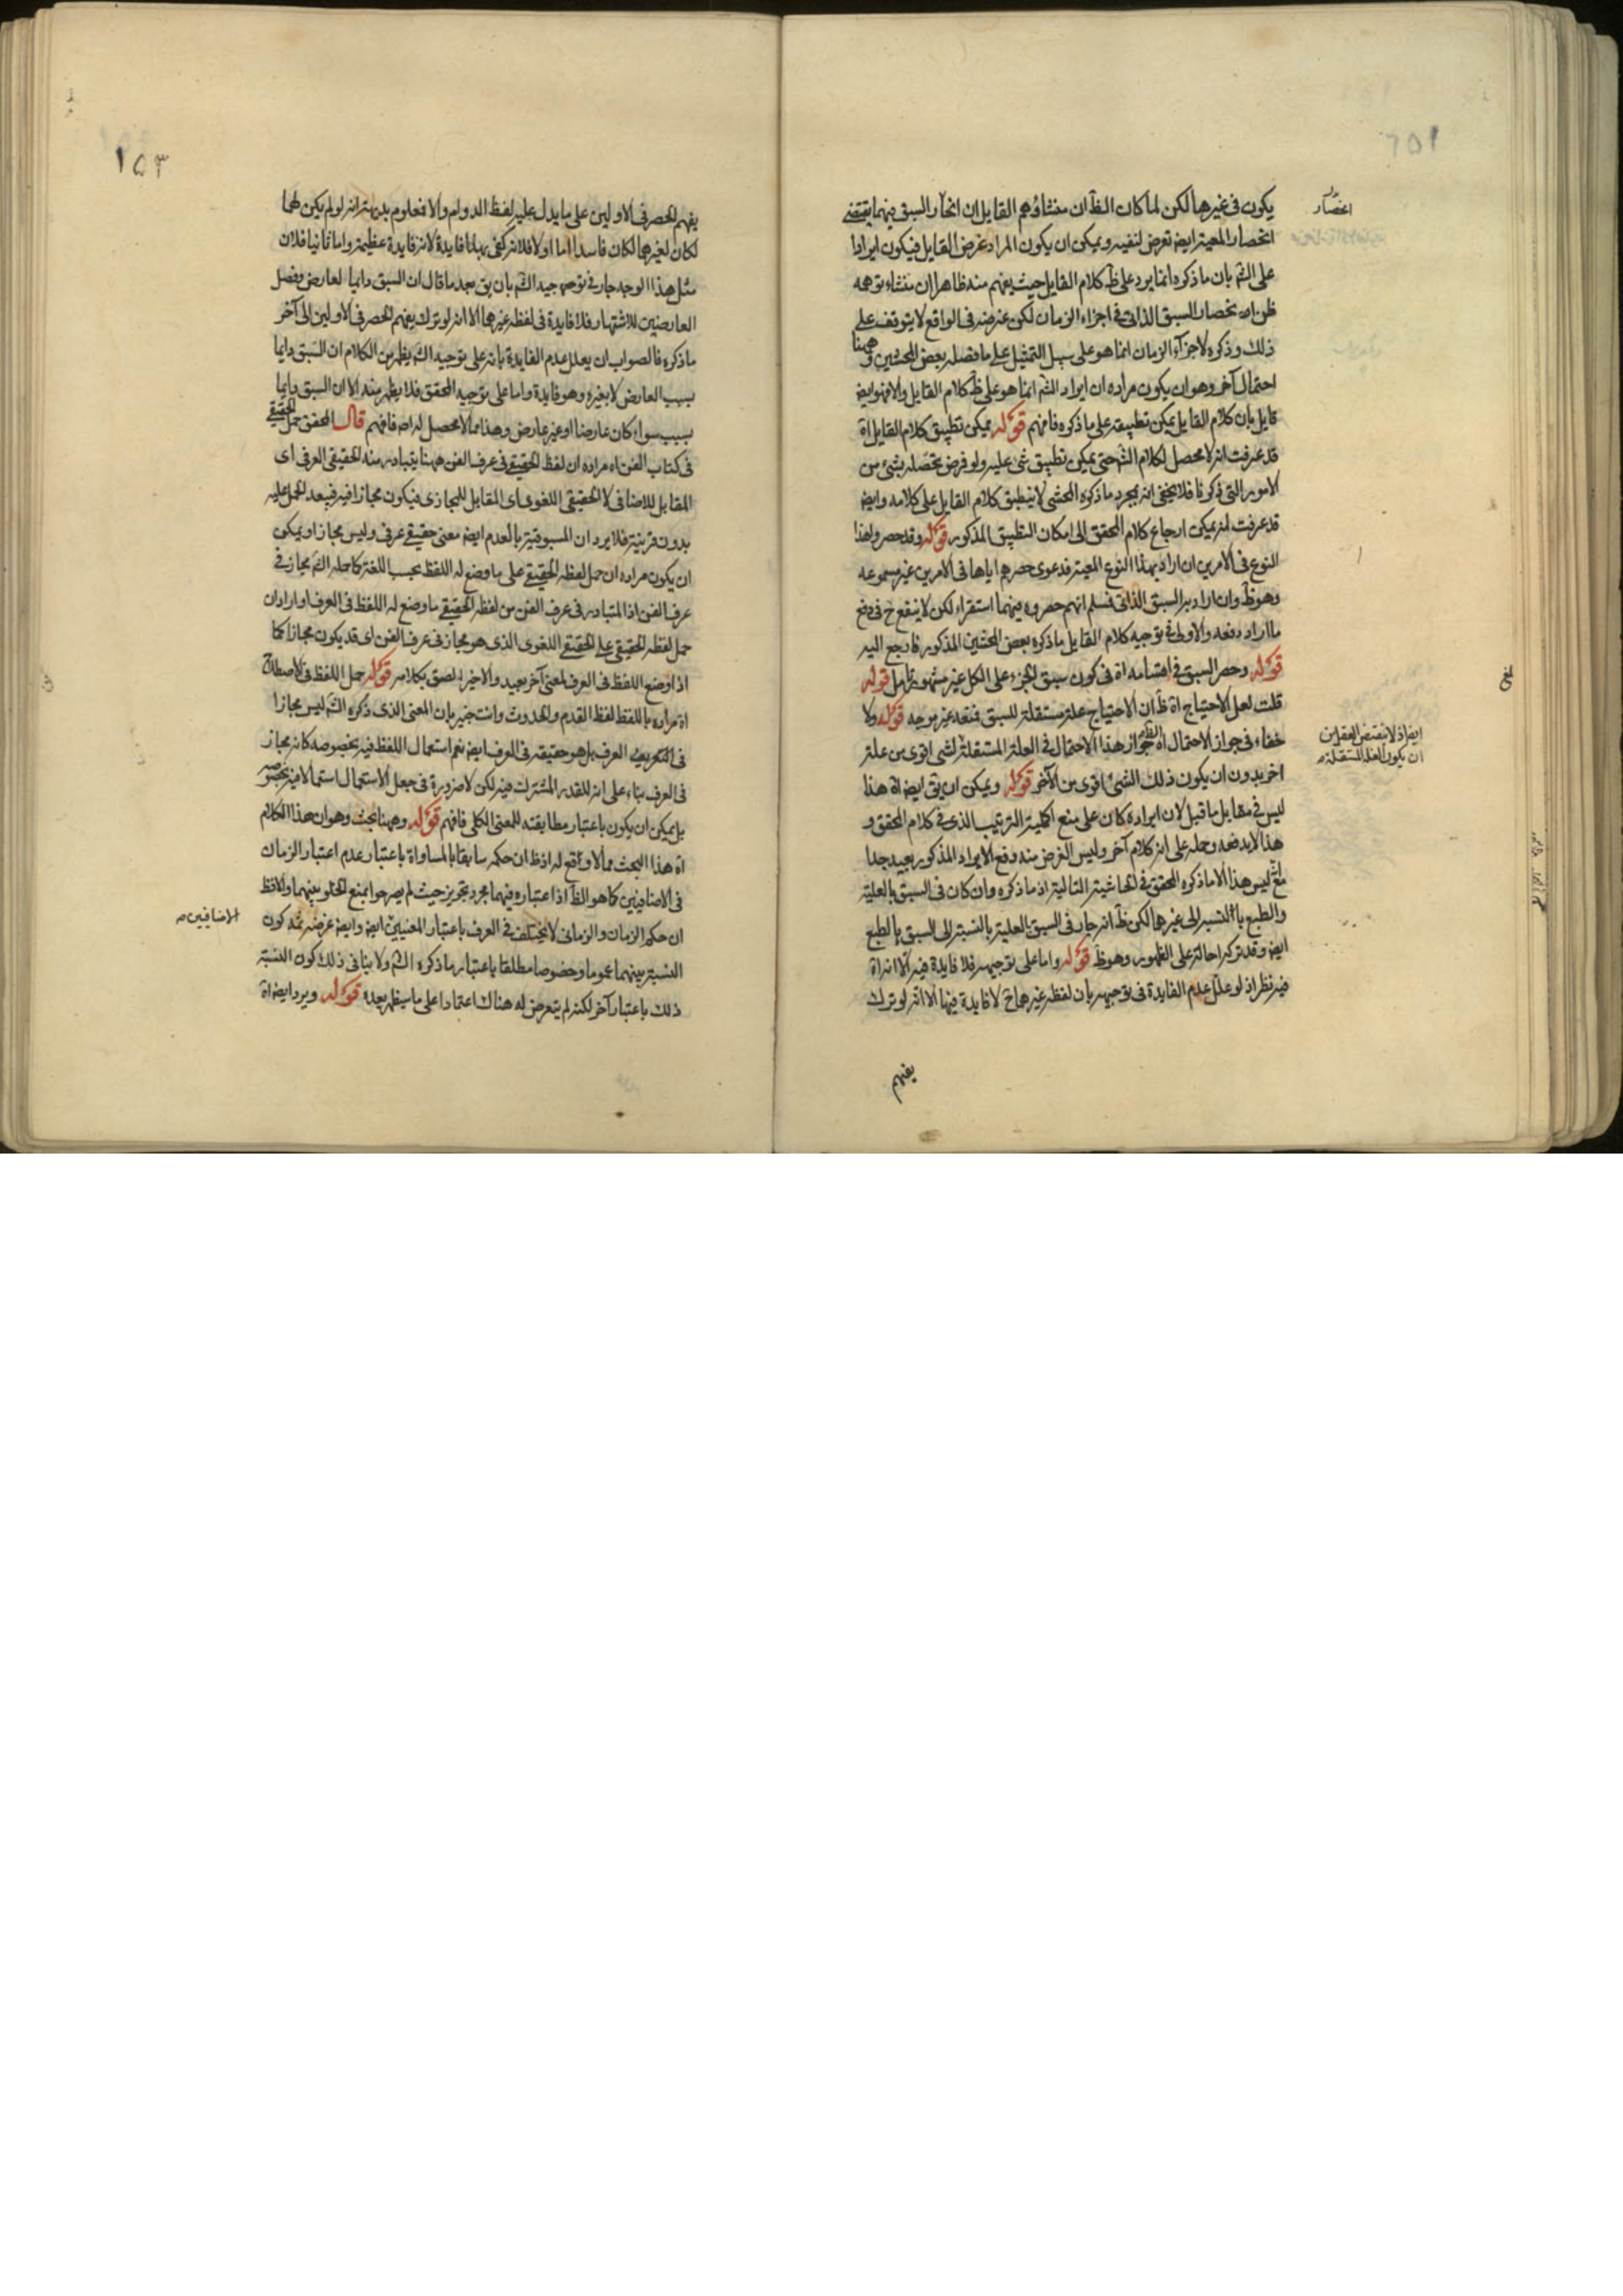 يكون فى غيرها لكن لما كان الظ ان منشاؤهم القايل ان انحصار السبق فيهما يقتضى
انحصار المعية ايض تعرض لنفيه ويمكن ان يكون المراد غرض القايل فيكون ايرادا
على الش بان ما ذكره انما يرد على ظ كلام القايل حيث يفهم منه ظاهرا ان منشاء توهمه
ظن انحصار السبق الذاتى فى اجزاء الزمان لكن غرضه فى الواقع لا يتوقف على
ذلك وذكره لاجزآء الزمان انما هو على سبيل التمثيل على ما فصله بعض المحشين وههنا
احتمال آخر وهو ان يكون مراده ان ايراد الش انما هو على ظ كلام القايل والا فهو ايض
قايل بان كلام القايل يمكن تطبيقه على ما ذكره فافهم قوله يمكن تطبيق كلام القايل اه
قد عرفت انه لا محصل لكلام الش حتى يمكن تطبيق شئ عليه ولو فرض محصله بشئ من
الامور التى ذكرنا فلا يخفى انه بمجرد ما ذكره المحشى لا ينطبق كلام القايل على كلامه وايض
قد عرفت انه يمكن ارجاع كلام المحقق الى امكان التطبيق المذكور قوله وقد حصر ولهذا
النوع فى الامرين ان اراد بهذا النوع المعية فدعوى حصرهم اياها فى الامرين غير مسموعه
وهو ظ وان اراد به السبق الذاتى فسلم انهم حصروه فيهما استقراء لكن لا ينفع ح فى دفع
ما اراد دفعه والاولى فى توجيه كلام القايل ما ذكره بعض المحشين المذكور فارجع اليه
قوله وحصر السبق فى اقسامه اه فى كون سبق الجزء على الكل غير مشهور تامل قوله
قلت لعل الاحتياج اه ظ ان الاحتياج علة مستقلة للسبق فنعه غير موجه قوله ولا
خفاء فى جواز الاحتمال اه الظ جواز هذا الاحتمال فى العلة المستقلة لشى اقوى من علة
اخرى بدون ان يكون ذلك الشئ اقوى من الآخر قوله ويمكن ان يق ايض اه هذا
ليس فى مقابل ما قيل لان ايراده كان على منع اكلية الترتيب الذى فى كلام المحقق و
هذا لا يدفعه وحمله على انه كلام آخر وليس الغرض منه دفع الايراد المذكور بعيد جدا
مع ليس هذا الا ما ذكره المحقق فى الحاشية التالية اذ ما ذكره وان كان فى السبق بالعلية
والطبع بالنسبة الى غيرها لكن ظ انه جار فى السبق بالعلية بالنسبة الى السبق بالطبع
ايض وقد ترك احالة على الظهور وهو ظ قوله واما على توجيهه فلا فايدة فيه الا انه اه
فيه نظر اذ لو علل عدم الفايدة فى توجيهه بان لفظ غيرهما ح لا فايدة فيها الا انه لو ترك
يفهم
ايض اذ لا يقتضى العقل ان
ان يكون العلة المستقلة
١٥٣
يفهم الحصر فى الاولين على ما يدل عليه لفظ الدوام والا فعلوم بديهة انه لو لم يكن لهما
لكان لغيرهما لكان فاسدا اما اولا فلانه كفى بهذا فايدة لانه فايدة عظيمة واما ثانيا فلان
مثل هذا الوجه جار فى توجيه الش بان يق بعد ما قال ان السبق دايما لعارض وفصل
العارضين للاشتهار فلا فايدة فى لفظ غيرهما الا انه لو ترك يفهم الحصر فى الاولين الى آخر
ما ذكره فالصواب ان يعلل عدم الفايدة بانه على توجيه الش يظهر من الكلام ان السبق دايما
بسبب العارض لا بغيره وهو فايدة واما على توجيه المحقق فلا يظهر منه الا ان السبق دايما
بسبب سواء كان عارضا او غير عارض وهذا مما لا محصل له اصه فافهم قال المحقق حمل الحقيقى
فى كتاب الفن اه مراده ان لفظ الحقيقى فى عرف الفن ههنا يتبادر منه الحقيقى العرفى اى
المقابل للاضافى لا الحقيقى اللغوى اى المقابل للمجازى فيكون مجازا فيه فبعد الحمل عليه
بدون قرينة فلا يرد ان المسبوقية بالعدم ايض معنى حقيقى عرفى وليس مجازا ويمكن
ان يكون مراده ان حمل لفظ الحقيقى على ما وضع له اللفظ بحسب اللغة كما حمله الش مجاز فى
عرف الفن اذ المتبادر فى عرف الفن من لفظ الحقيقى ما وضع له اللفظ فى العرف او اراد ان
حمل لفظ الحقيقى على الحقيقى اللغوى الذى هو مجاز فى عرف الفن اى قد يكون مجازا كما
اذا وضع اللفظ فى العرف لمعنى آخر بعيد والاخير الصق بكلامه قوله حمل اللفظ فى الاصطلاح
اه مراده باللفظ لفظ القدم والحدوث وانت خبير بان المعنى الذى ذكره الش ليس مجازا
فى العرف بل هو حقيقة فى العرف ايض نعم استعمال اللفظ فيه بخصوصه كانه مجاز
فى العرف بناء على انه للقدر المشترك فيه لكن لا ضرورة فى جعل الاستعمال استعمالا فيه بخصوصه
بل يمكن ان يكون باعتبار مطابقته للمعنى الكلى فافهم قوله وههنا بحث وهو ان هذا الكلام
اه هذا البحث مما لا وقع له اذ ظ ان حكمه سابقا بالمساواة باعتبار عدم اعتبار الزمان
فى الاضافيين كما هو الظ اذا اعتباره فيهما مجرد تجويز حيث لم يصرحوا بمنع الخلو بينهما والا فظ
ان حكم الزمان والزمانى لا يختلف فى العرف باعتبار المعنيين ايض وايض غرضه ثمه كون
النسبة بينهما عموما وخصوصا مطلقا باعتبار ما ذكره الش ولا ينافى ذلك كون النسبة
ذلك باعتبار آخر لكنه لم يتعرض له هناك اعتمادا على ما سيظهر بعده قوله ويرد ايض اه
الاضافيين